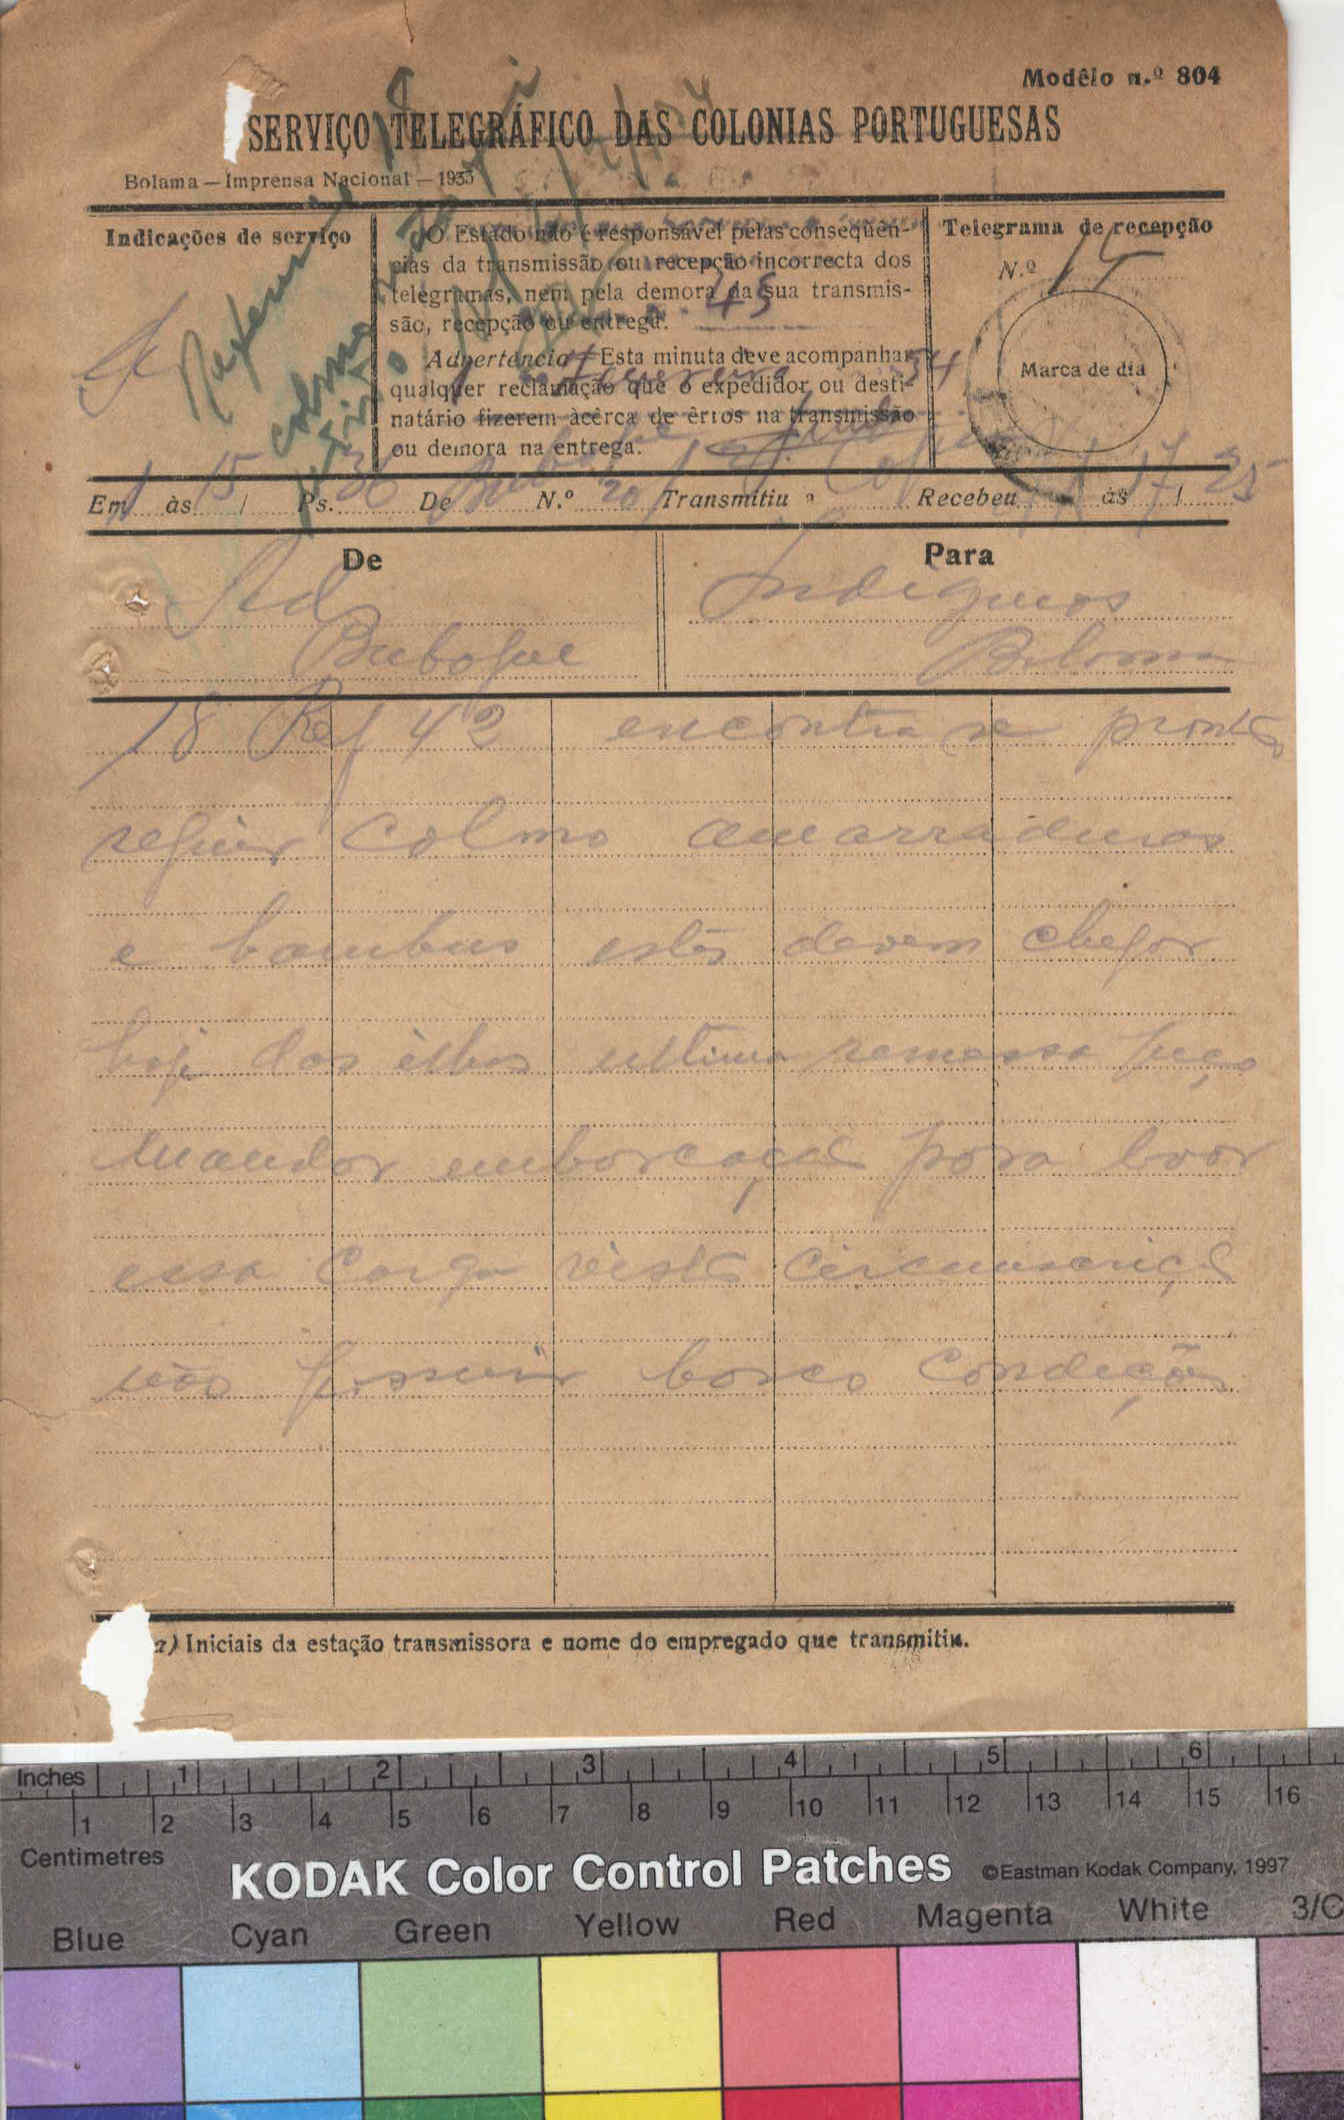 Modêlo n.º 804
SERVIÇO TELEGRÁFICO DAS COLONIAS PORTUGUESAS
Bolama — Imprensa Nacional — 1933
Indicações de serviço
O Estado não é responsável pelas conseqüên-
cias da transmissão ou recepção incorrecta dos
telegramas, nem pela demora da sua transmis-
são, recepção ou entrega.
Advertência — Esta minuta deve acompanhar
qualquer reclamação que o expedidor ou desti-
natário fizerem àcêrca de êrros na transmissão
ou demora na entrega.
45
34
Telegrama de recepção
N.º
Marca de dia
colmo
Em 1 às 15 / Ps. 36 De Bubaque N.º 20 Transmitiu a Recebeu às 17 / 25
De
Para
Adm
Indigenas
Bubaque
Bolama
18 Ref 42 encontra se pronto
seguir colmo amarraduras
e bambus estes devem chegar
hoje das ilhas ultima remessa peço
mandar embarcação para levar
essa carga visto circunscrição
não possuir barco condições
a) Iniciais da estação transmissora e nome do empregado que transmitiu.
Inches 1 2 3 4 5 6
1 2 3 4 5 6 7 8 9 10 11 12 13 14 15 16
Centimetres
KODAK Color Control Patches ©Eastman Kodak Company, 1997
Blue Cyan Green Yellow Red Magenta White 3/C